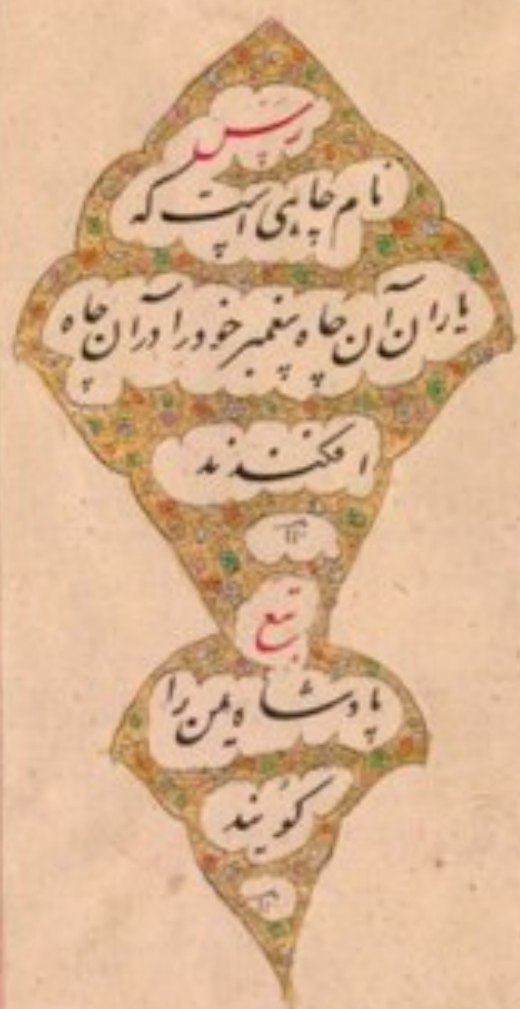 رس
نام چاهی است که
یاران آن چاه پیغمبر خود را در آن چاه
افکندند
۱۲
تبع
پادشاه یمن را
گویند
۱۲